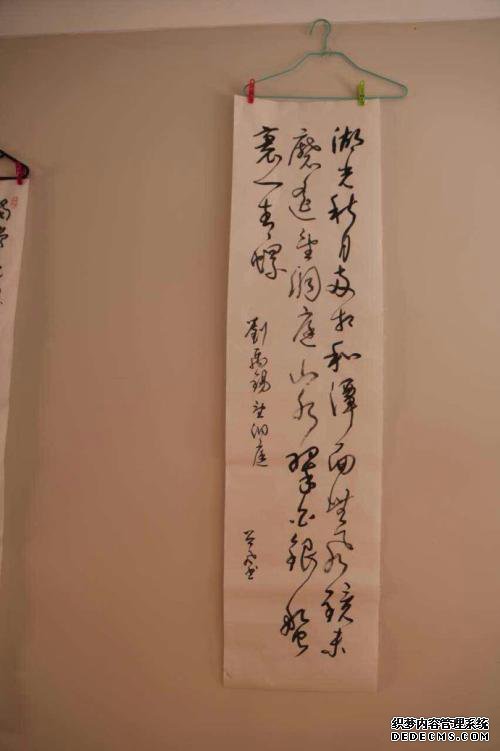 湖光秋月兩相和潭面無風鏡未
磨遥望洞庭山水翠白銀盤
裏一青螺
劉禹錫望洞庭
书
织梦内容管理系统
DEDECMS.COM